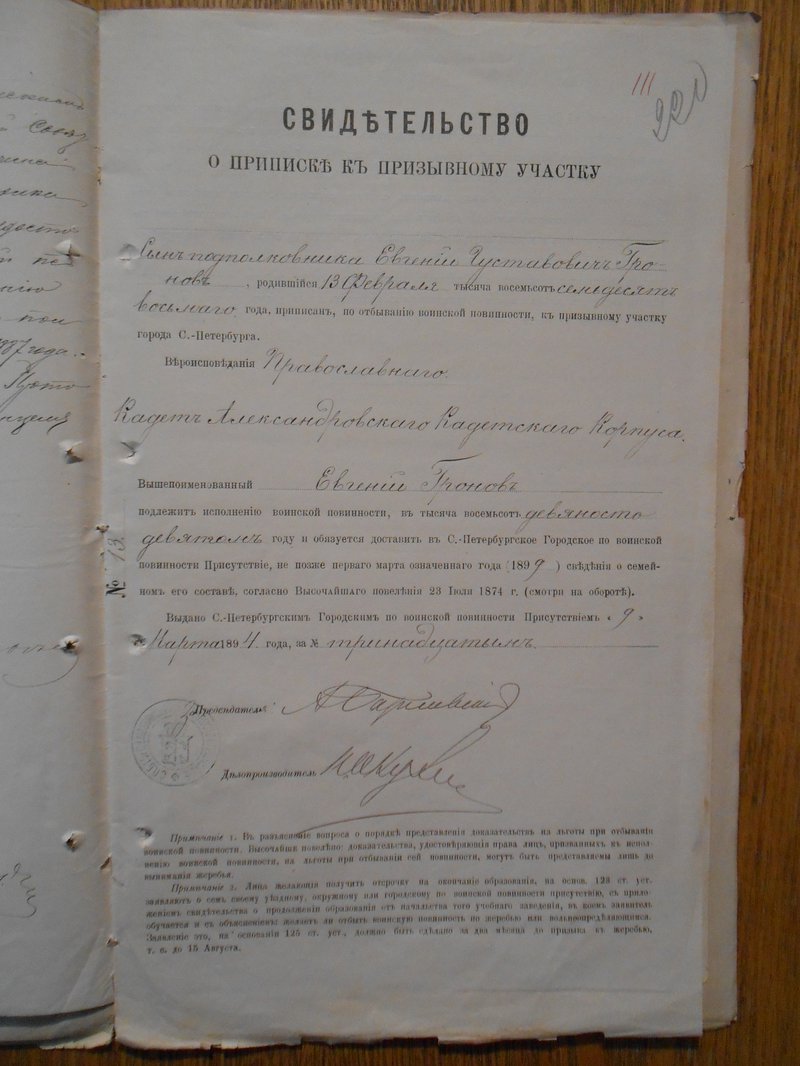 111
220
СВИДѢТЕЛЬСТВО
О ПРИПИСКѢ КЪ ПРИЗЫВНОМУ УЧАСТКУ
Сынъ подполковника Евгеній Густавовичъ Гро-
новъ, родившійся 13 Февраля тысяча восемьсотъ семидесятъ
восьмаго года, приписанъ, по отбыванію воинской повинности, къ призывному участку
города С.-Петербурга.
Вѣроисповѣданія Православнаго.
Кадетъ Александровскаго Кадетскаго Корпуса.
Вышепоименованный Евгеній Гроновъ
подлежитъ исполненію воинской повинности, въ тысяча восемьсотъ девяносто
девятомъ году и обязуется доставить въ С.-Петербургское Городское по воинской
повинности Присутствіе, не позже перваго марта означеннаго года (1899) свѣдѣнія о семей-
номъ его составѣ, согласно Высочайшаго повелѣнія 23 Іюля 1874 г. (смотри на оборотѣ).
№ 13.
Выдано С.-Петербургскимъ Городскимъ по воинской повинности Присутствіемъ « 9 »
Марта 1894 года, за № тринадцатымъ.
Предсѣдатель
Дѣлопроизводитель
Примѣчаніе 1. Въ разъясненіе вопроса о порядкѣ представленія доказательствъ на льготы при отбываніи
воинской повинности, Высочайше повелѣно: доказательства, удостовѣряющія права лицъ, призванныхъ къ испол-
ненію воинской повинности, на льготы при отбываніи сей повинности, могутъ быть представляемы лишь до
вынимания жеребья.
Примѣчаніе 2. Лица желающія получить отсрочку на окончаніе образованія, на основ. 128 ст. уст.
заявляютъ о семъ своему уѣздному, окружному или городскому по воинской повинности присутствію, съ прило-
женіемъ свидѣтельства о продолженіи образованія отъ начальства того учебнаго заведенія, въ коемъ заявитель
обучается и съ объясненіемъ: желаетъ ли отбыть воинскую повинность по жеребью или вольноопредѣляющимся.
Заявленіе это, на основаніи 125 ст. уст., должно быть сдѣлано за два мѣсяца до призыва къ жеребью,
т. е. до 15 Августа.